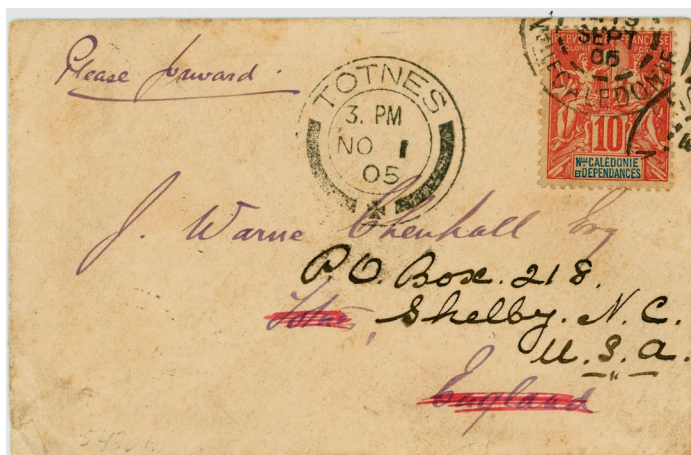 Please forward.
TOTNES
3. PM
NO 1
05
SEPT
05
CALEDONIE
REPUBLIQUE FRANÇAISE
COLONIES POSTES
10
NLLE CALÉDONIE
ET DÉPENDANCES
J. Warne Chenhall Esq
P.O. Box. 218.
Totnes, Shelby. N. C.
U. S. A.
England